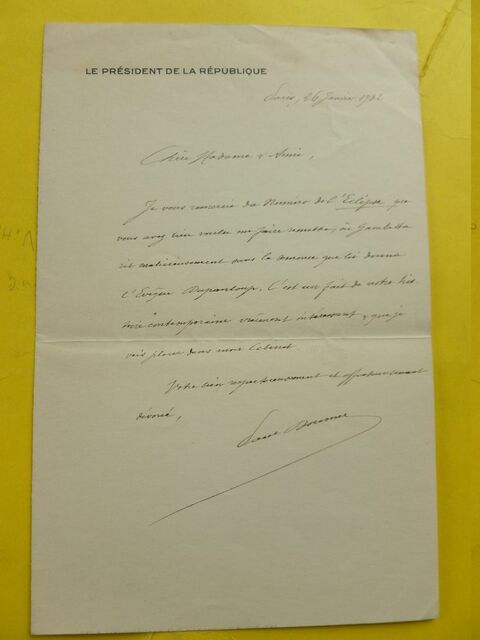 LE PRÉSIDENT DE LA RÉPUBLIQUE
Paris, 26 Janvier 1932
Chère Madame & Amie,
Je vous remercie du Numéro de l'Eclipse que
vous avez bien voulu me faire remettre, où Gambetta
rit malicieusement sous la que lui donna
l'Evêque Dupanloup. C'est un fait de notre his
toire contemporaine vraiment intéressant, & que je
vais placer dans mon Cabinet.
Votre bien respectueusement et affectueusement
dévoué,
Paul Doumer